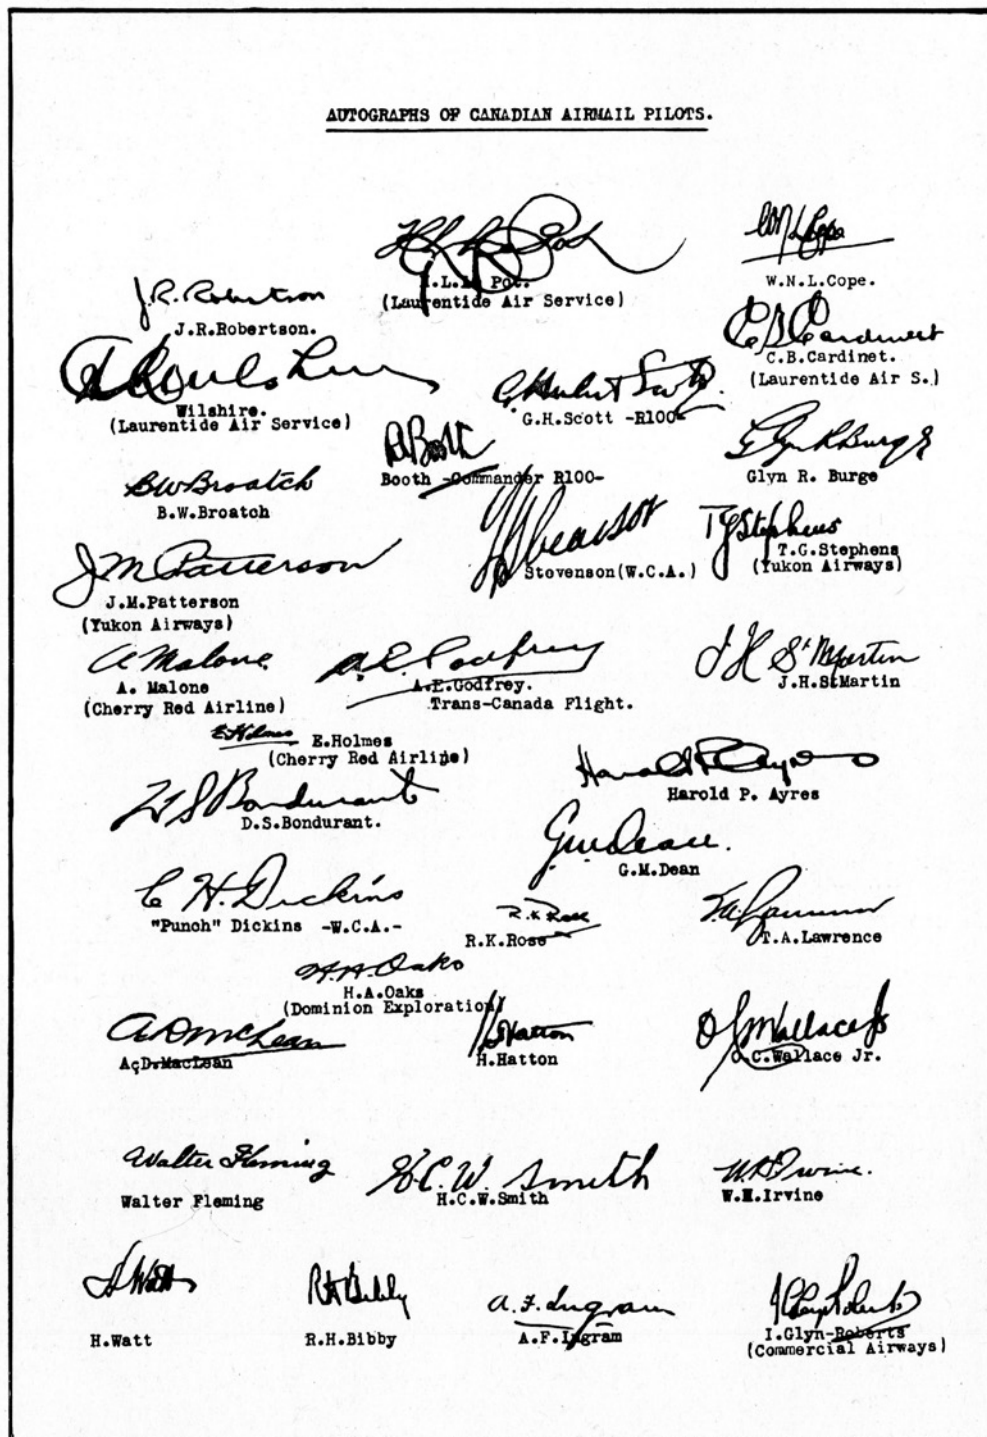 AUTOGRAPHS OF CANADIAN AIRMAIL PILOTS.
W.N.L.Cope.
(Laurentide Air Service)
J.R. Robertson
J.R.Robertson.
C.B.Cardinet.
(Laurentide Air S.)
Wilshire.
(Laurentide Air Service)
G.H.Scott -R100-
A Booth
Booth -Commander R100-
Glyn R Burge
Glyn R. Burge
BWBroatch
B.W.Broatch
Stevenson(W.C.A.)
TG Stephens
T.G.Stephens
(Yukon Airways)
J M Patterson
J.M.Patterson
(Yukon Airways)
A Malone
A. Malone
(Cherry Red Airline)
A.E. Godfrey
A.E.Godfrey.
Trans-Canada Flight.
J H St Martin
J.H.StMartin
E Holmes
E.Holmes
(Cherry Red Airline)
Harold P Ayres
Harold P. Ayres
D S Bondurant
D.S.Bondurant.
G.M.Dean
C H. Dickins
"Punch" Dickins -W.C.A.-
R.K Rose
R.K.Rose
T.A.Lawrence
H.A. Oaks
H.A.Oaks
(Dominion Exploration)
A D McLean
A.D.MacLean
H Hatton
H.Hatton
O C Wallace Jr
O.C.Wallace Jr.
Walter Fleming
Walter Fleming
H.C.W. Smith
H.C.W.Smith
Irvine.
Irvine
H Watt
H.Watt
R H Bibby
R.H.Bibby
A. F. Ingram
A.F.Ingram
I.Glyn-Roberts
(Commercial Airways)